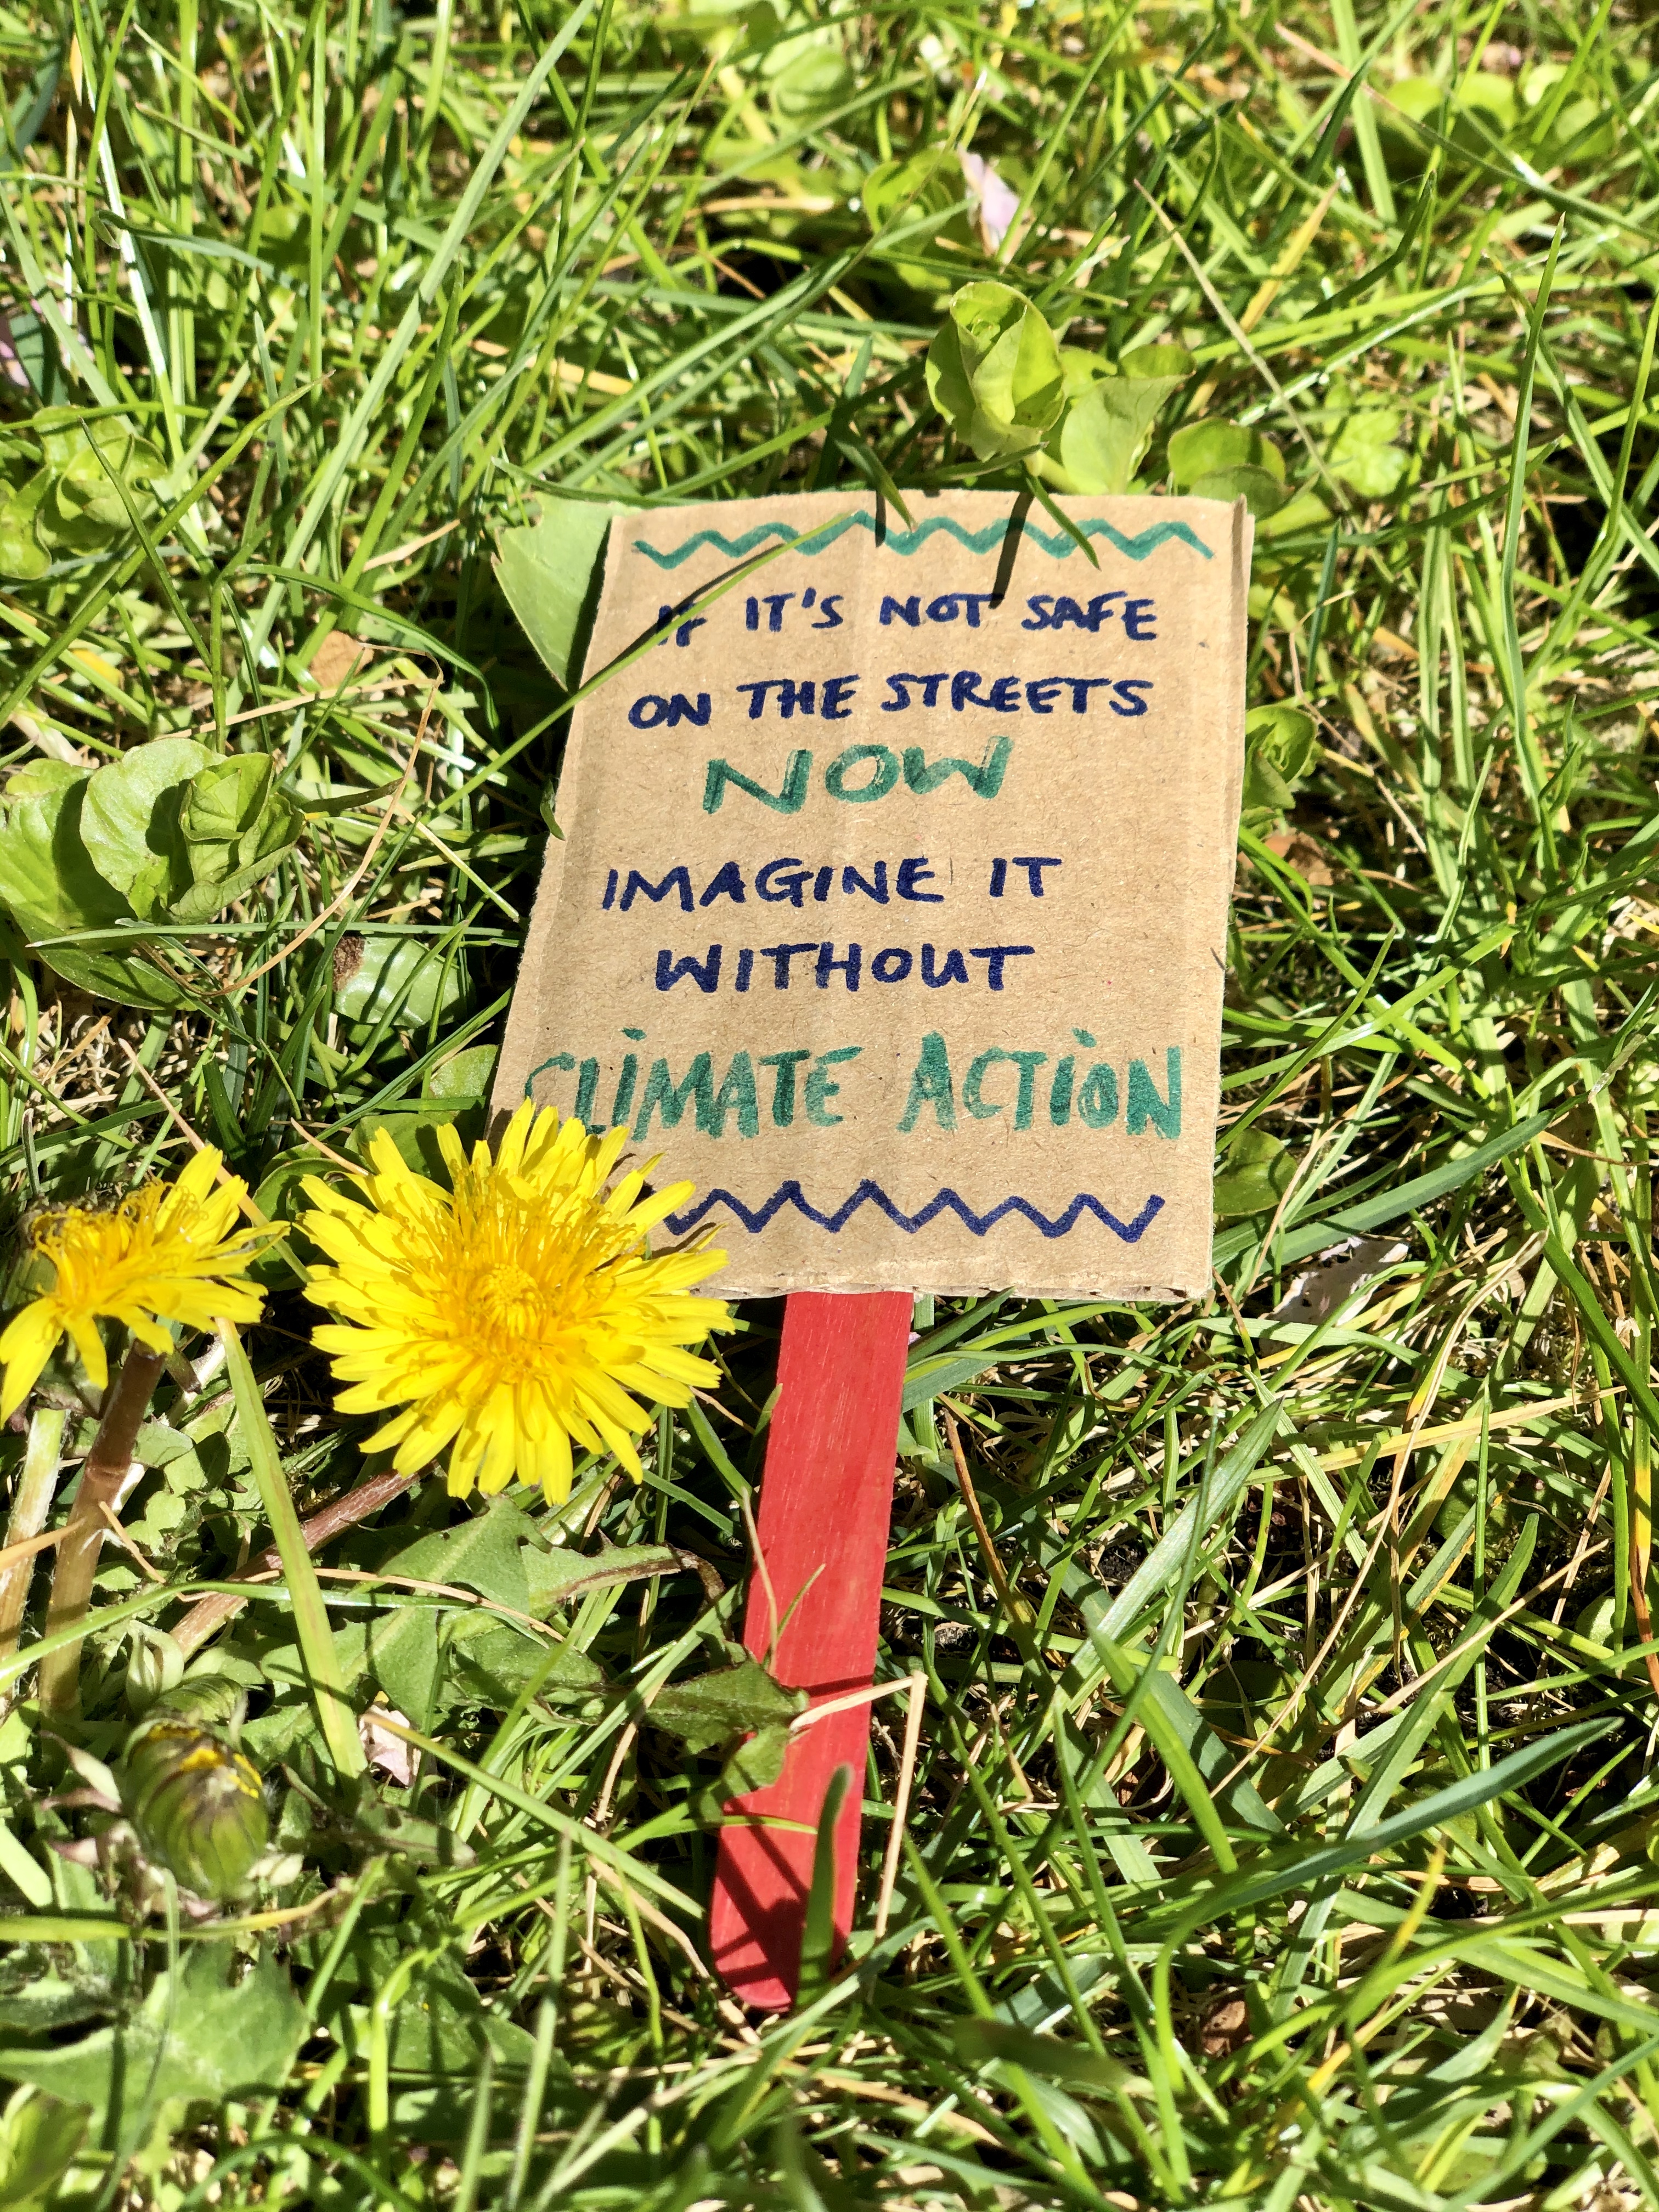 IF IT'S NOT SAFE
ON THE STREETS
NOW
IMAGINE IT
WITHOUT
CLIMATE ACTION